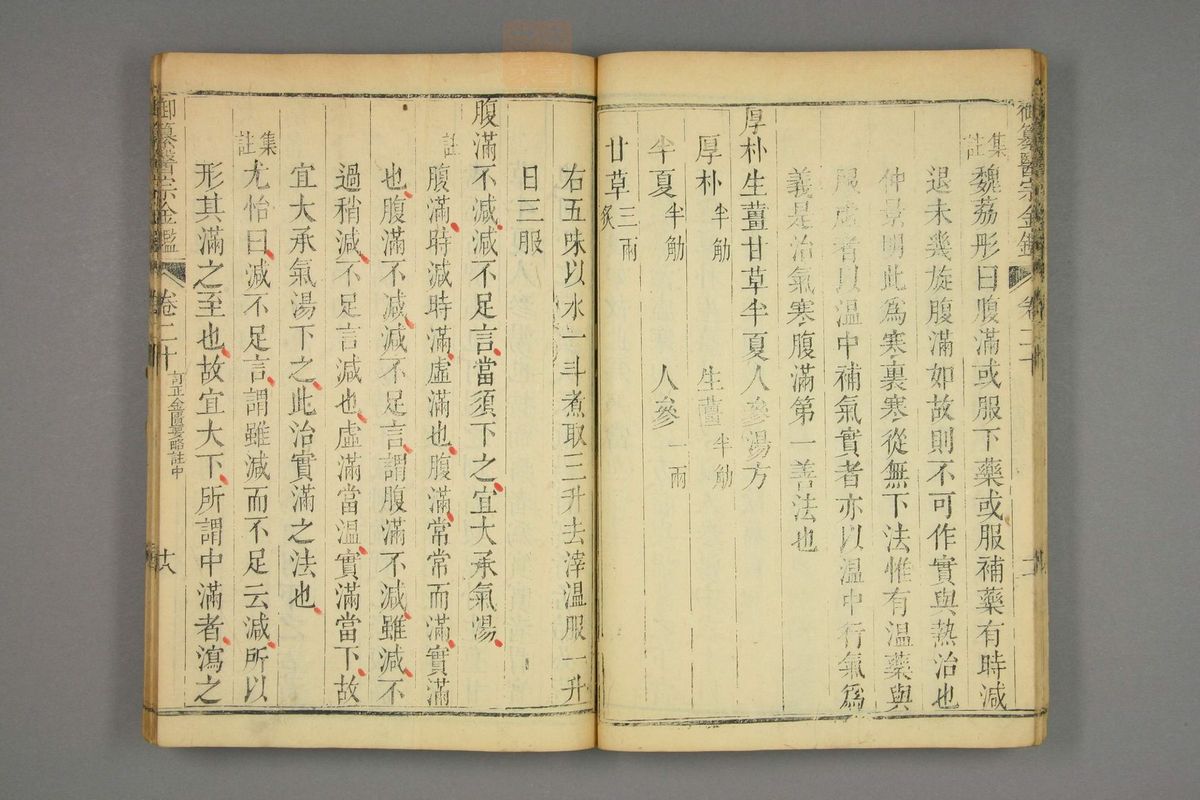 御纂醫宗金鑑
卷二十
集註
魏荔彤曰腹滿或服下藥或服補藥有時減
退未幾旋腹滿如故則不可作實與熱治也
仲景明此爲寒裏寒從無下法惟有溫藥與
服虛者以溫中補氣實者亦以溫中行氣爲
義是治氣寒腹滿第一善法也
厚朴生薑甘草半夏人參湯方
厚朴半觔 生薑半觔
半夏半觔 人參一兩
甘草三兩炙
右五味以水一斗煮取三升去滓溫服一升
日三服
腹滿不減減不足言當須下之宜大承氣湯
註
腹滿時減時滿虛滿也腹滿常常而滿實滿
也腹滿不減減不足言謂腹滿不減雖減不
過稍減不足言減也虛滿當溫實滿當下故
宜大承氣湯下之此治實滿之法也
集註
尤怡曰減不足言謂雖減而不足云減所以
形其滿之至也故宜大下所謂中滿者瀉之
御纂醫宗金鑑
卷二十
訂正金匱要略註中